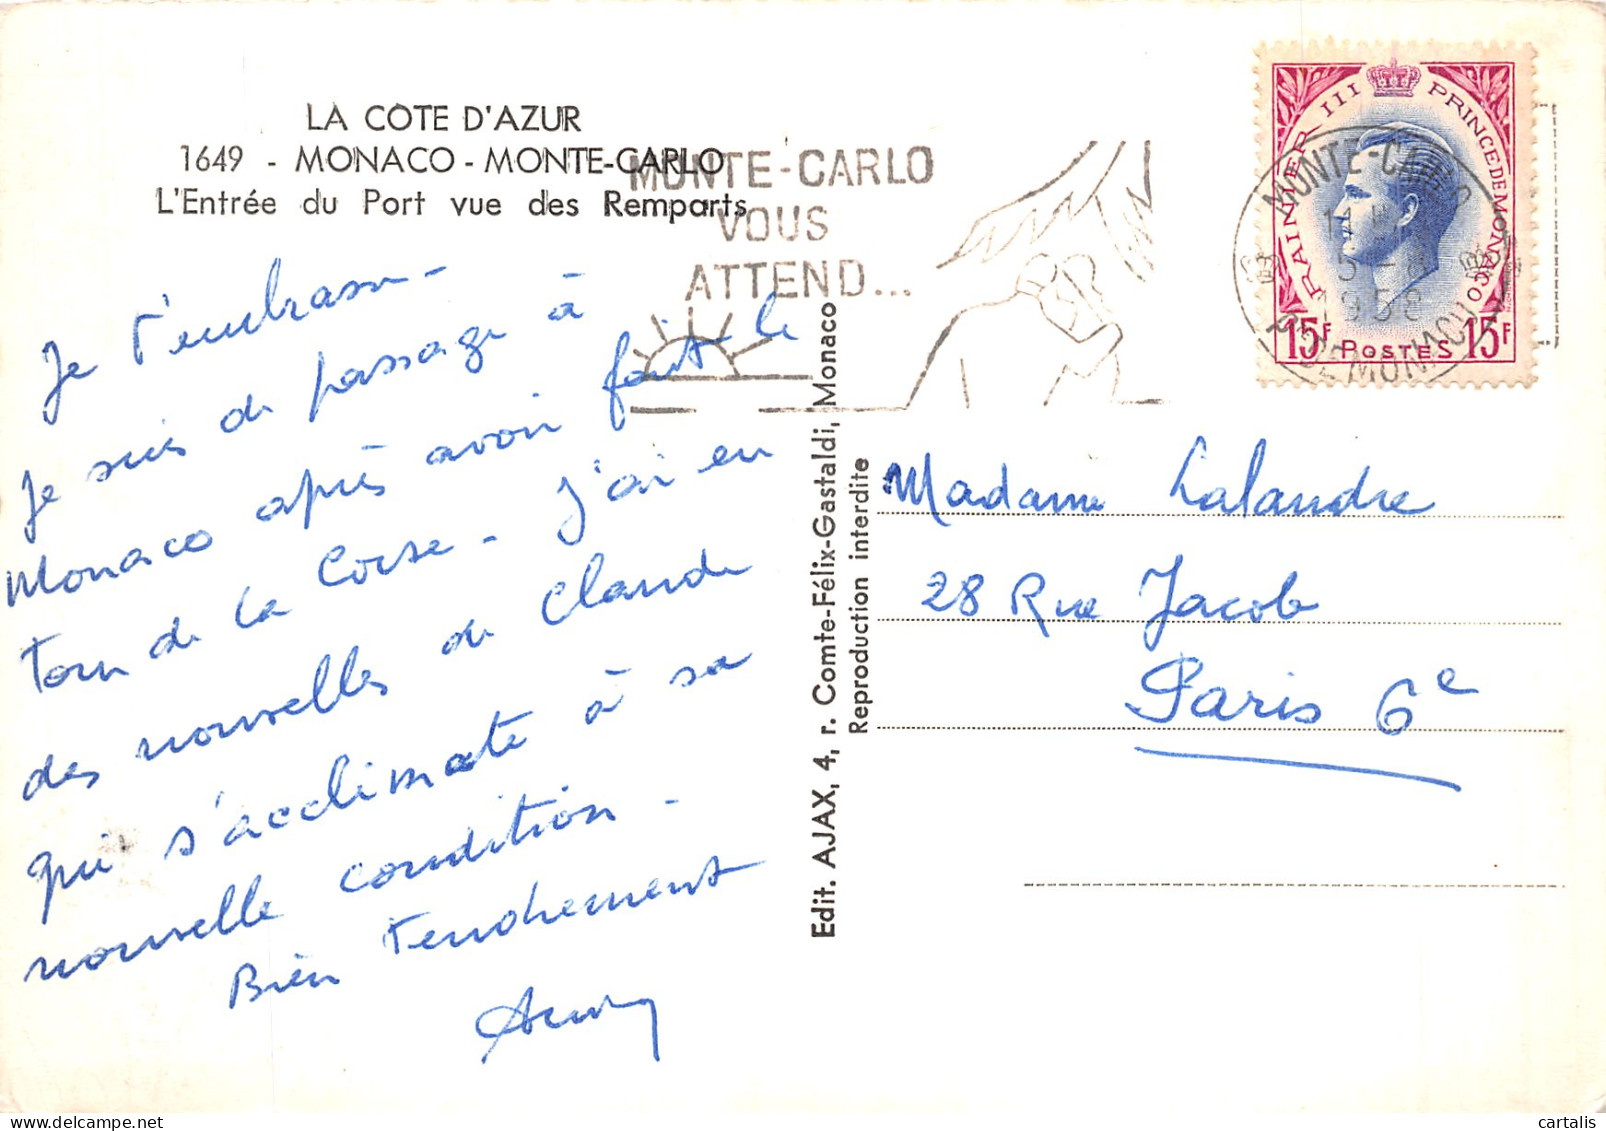 LA COTE D'AZUR
1649 - MONACO - MONTE-CARLO
L'Entrée du Port vue des Remparts
MONTE-CARLO
VOUS
ATTEND...
RAINIER III PRINCE DE MONACO
15F POSTES 15F
MONTE-CARLO
1958
Pté DE MONACO
Je t'embrasse -
Je suis de passage à
Monaco après avoir fait le
tour de la Corse - J'ai eu
des nouvelles de Claude
qui s'acclimate à sa
nouvelle condition -
Bien tendrement
Edit. AJAX, 4, r. Comte-Félix-Gastaldi, Monaco
Reproduction interdite
Madame Lalandre
28 Rue Jacob
Paris 6e
cartalis